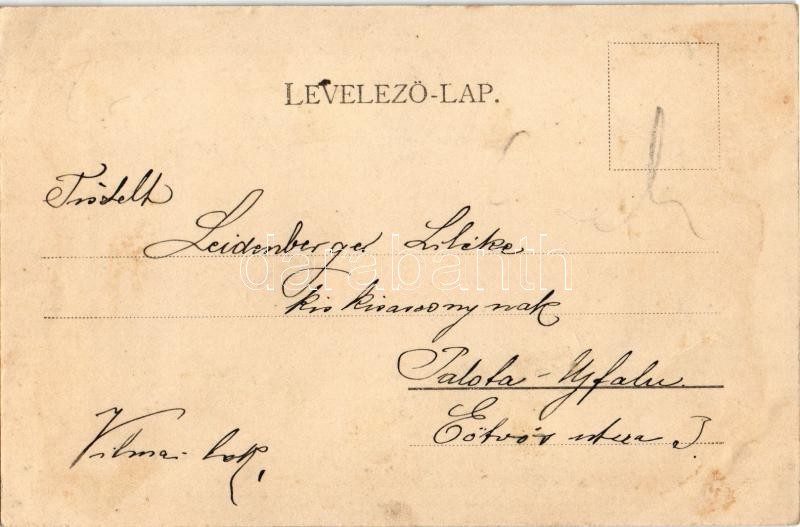 LEVELEZŐ-LAP.
Tisztelt
Leidenberger Lilike
kis kisassonynak
Palota-Ujfalu
Eötvös utcza
Vilma
darabanth